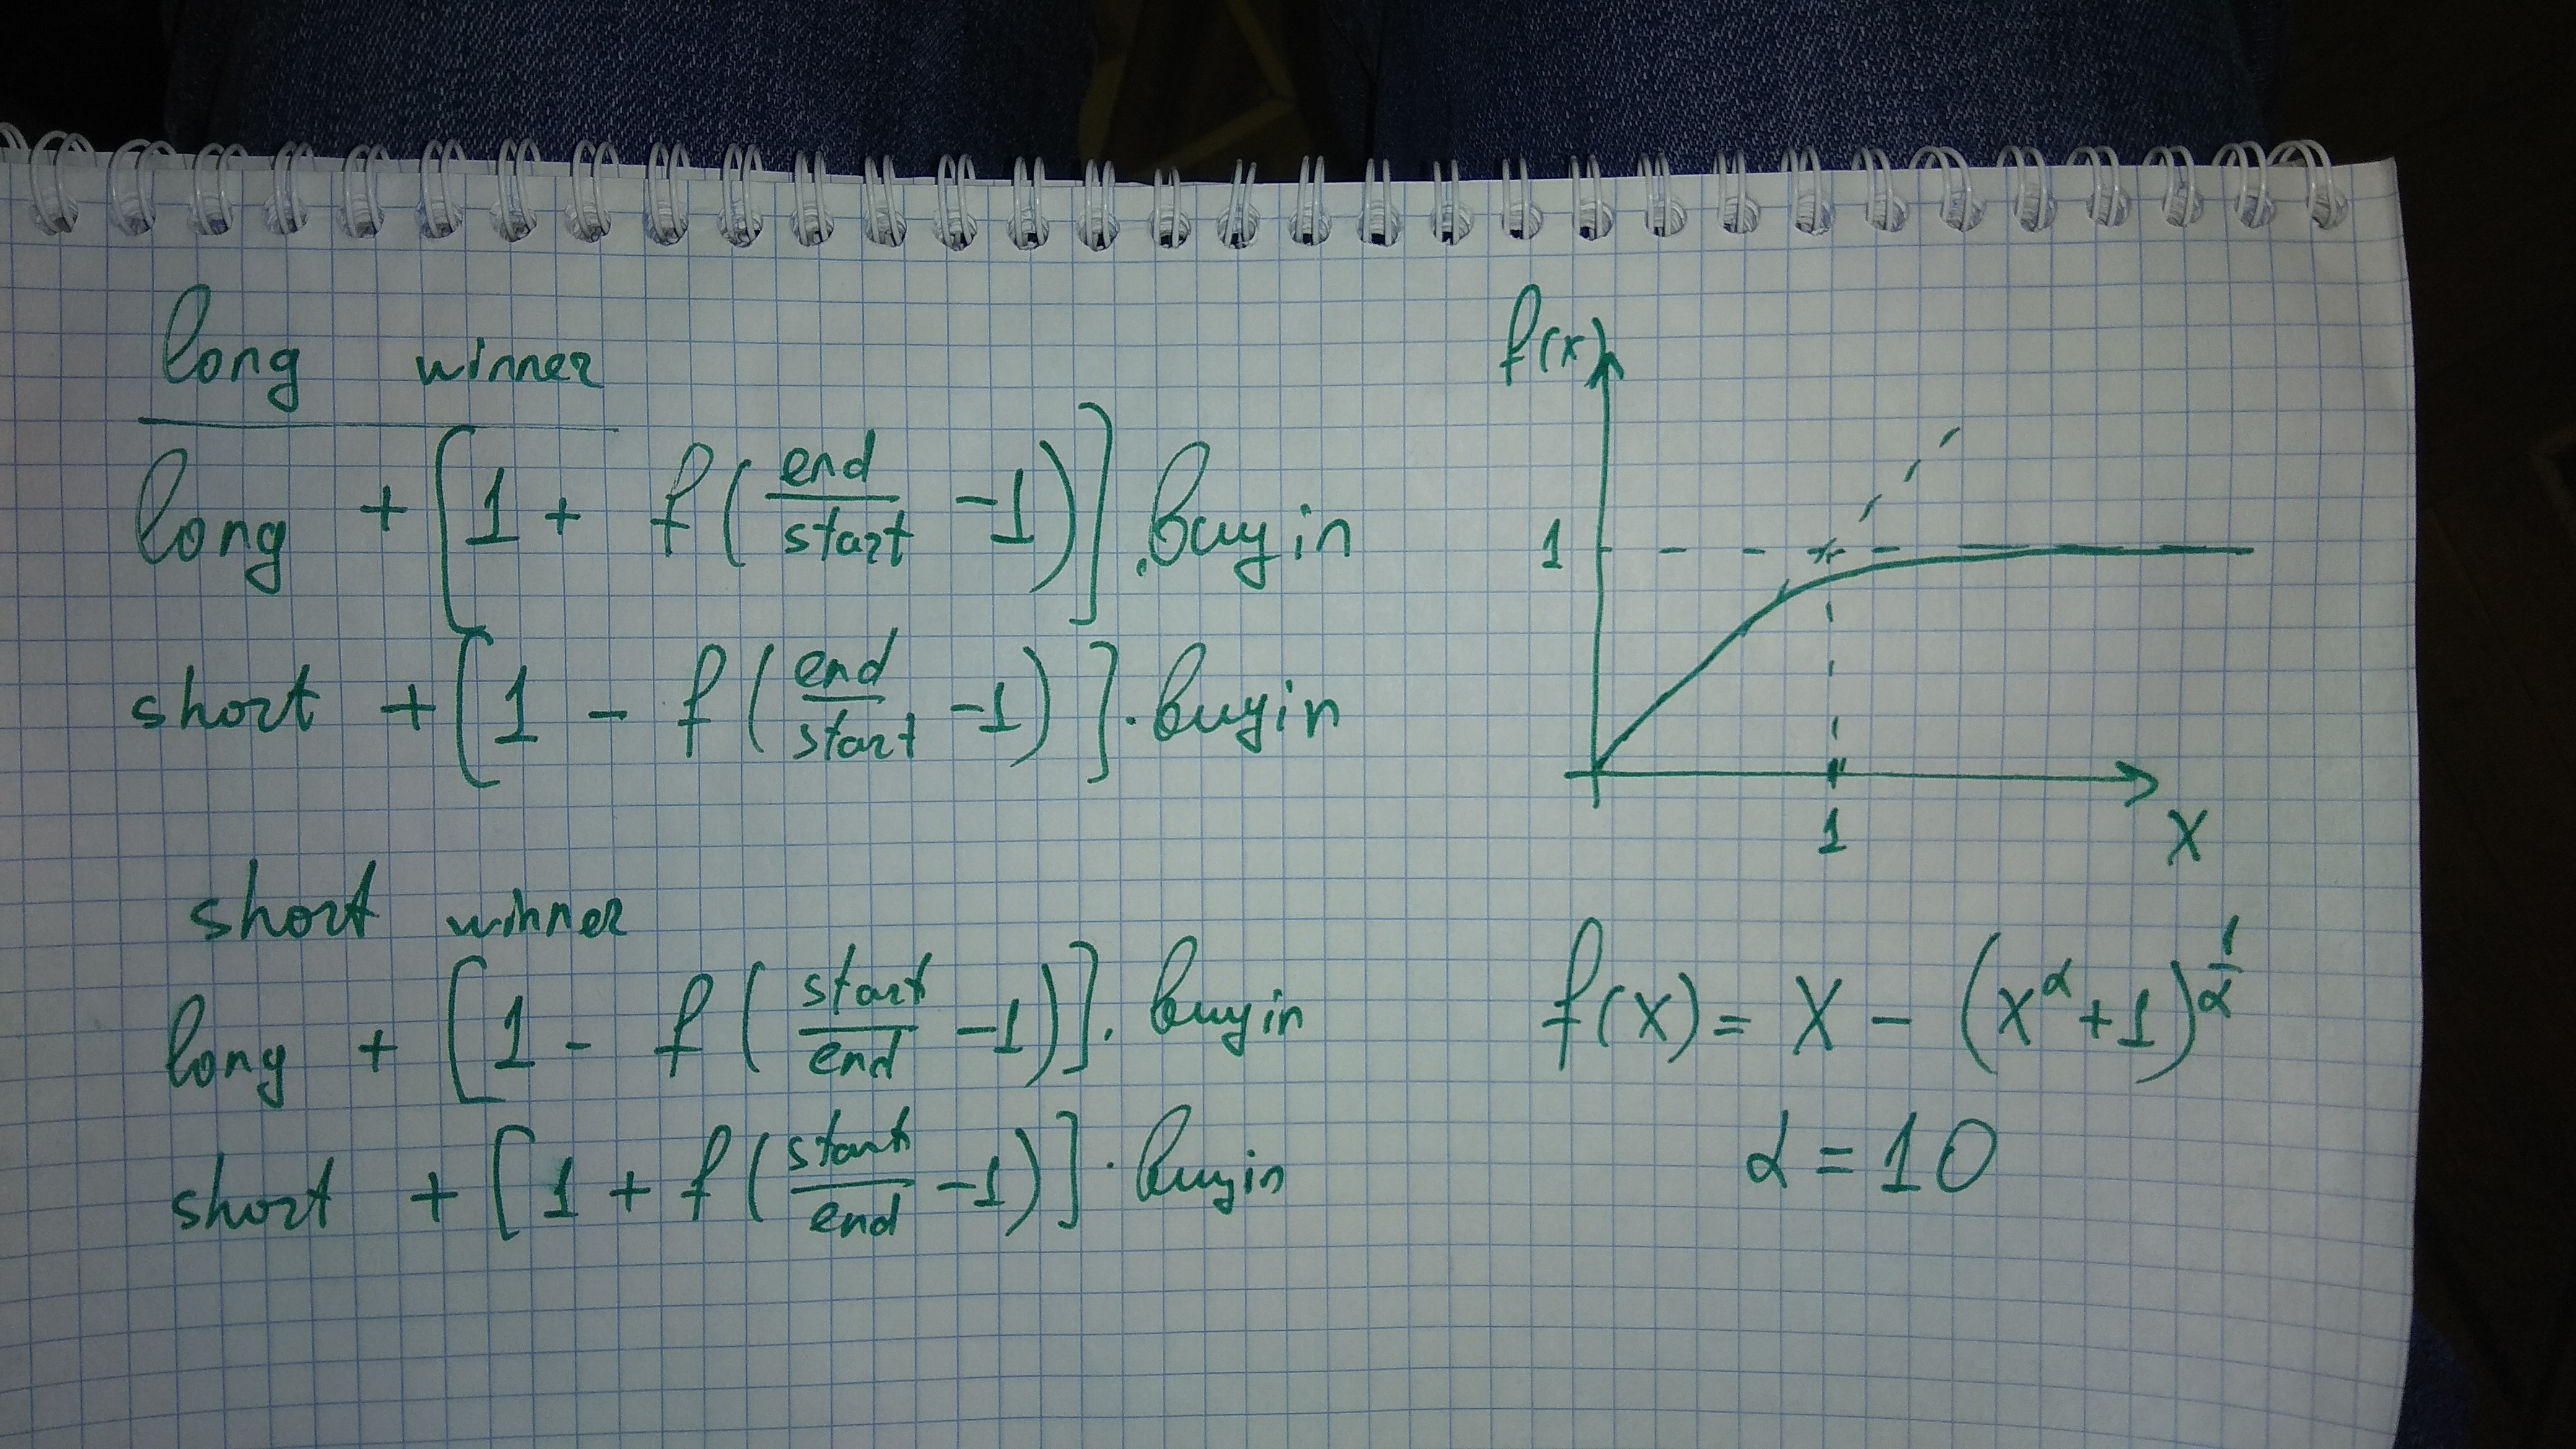 long winner
long + [1 + f(end/start -1)] . buyin
short + [1 - f(end/start -1)] . buyin
short winner
long + [1 - f(start/end -1)] . buyin
short + [1 + f(start/end -1)] . buyin
f(x)
1
1
X
f(x) = X - (x^α + 1)^(1/α)
α = 10